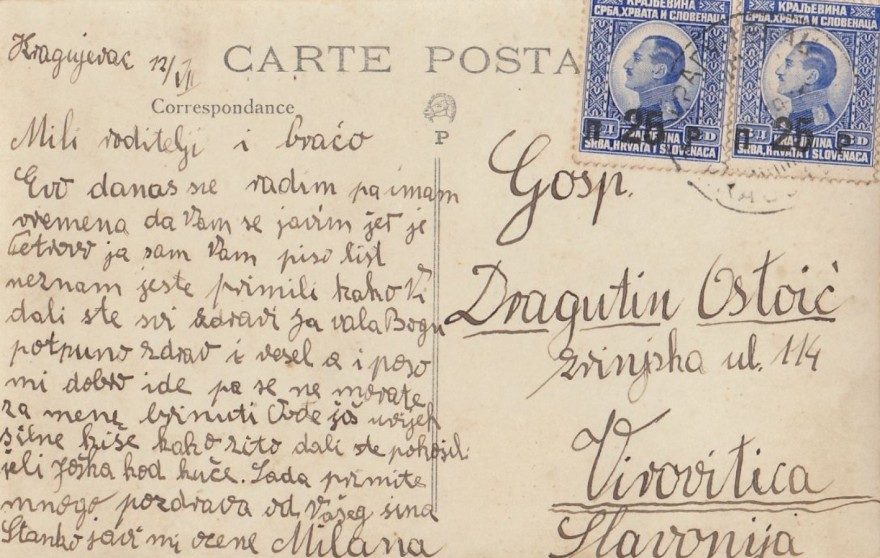 Kragujevac 12/VII
CARTE POSTA
Correspondance
P
Mili roditelji i braćo
Evo danas ne radim pa imam
vremena da vam se javim jer je
Četrovo ja sam Vam piso list
neznam jeste primili kako Vi
dali ste svi zdravi ja vala Bogu
potpuno zdrav i vesel a i poso
mi dobro ide pa se ne morate
za mene brinuti Ovde još uvijek
silne kiše kako žito dali ste pokosili
jeli Joška kod kuće. Sada primite
mnogo pozdrava od Vašeg sina
Stanko javi mi ocene Milana
КРАЉЕВИНА
СРБА, ХРВАТА И СЛОВЕНАЦА
П 25 Р
SRBA, HRVATA I SLOVENACA
КРАЉЕВИНА
СРБА, ХРВАТА И СЛОВЕНАЦА
П 25 Р
SRBA, HRVATA I SLOVENACA
Gosp.
Dragutin Ostoić
zrinjska ul. 114
Virovitica
Slavonija